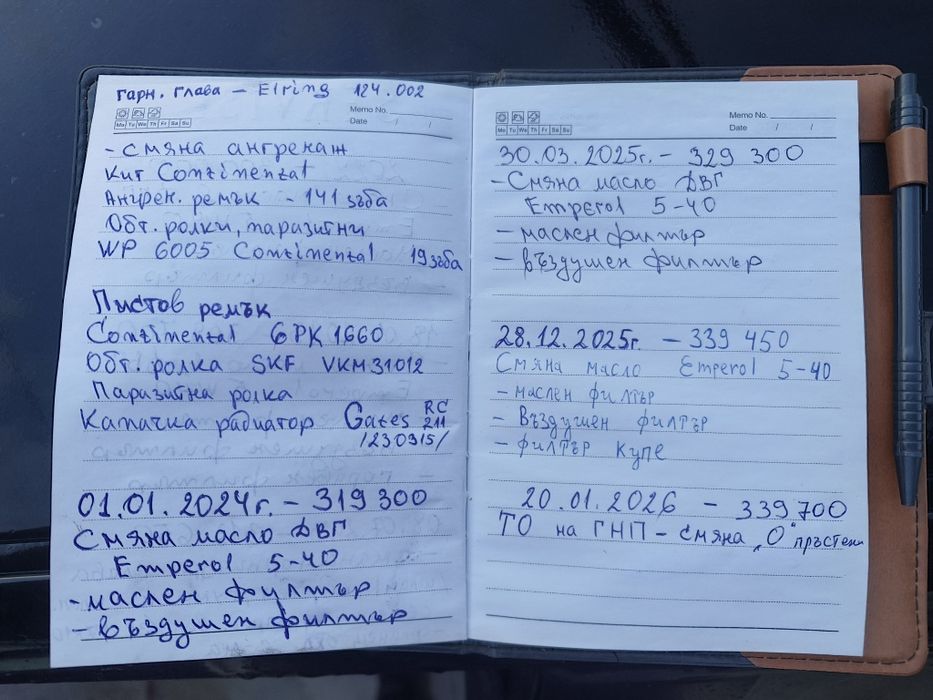 гарн. глава – Elring 124.002
Memo No.
Date / /
Mo Tu We Th Fr Sa Su
- смяна ангренаж
кит Continental
Ангрен. ремък - 141 зъба
Обт. ролки, паразитни
WP 6005 Continental 19 зъба
Пистов ремък
Continental 6PK 1660
Обт. ролка SKF VKM 31012
Паразитна ролка
Капачка радиатор Gates RC 211
/230915/
01.01.2024г. – 319 300
Смяна масло ДВГ
Emperol 5-40
- маслен филтър
- въздушен филтър
Memo No.
Date / /
Mo Tu We Th Fr Sa Su
30.03.2025г. – 329 300
- Смяна масло ДВГ
Emperol 5-40
- маслен филтър
- въздушен филтър
28.12.2025г. – 339 450
Смяна масло Emperol 5-40
- маслен филтър
- Въздушен филтър
- филтър купе
20.01.2026 – 339 700
ТО на ГНП – смяна „О" пръстени